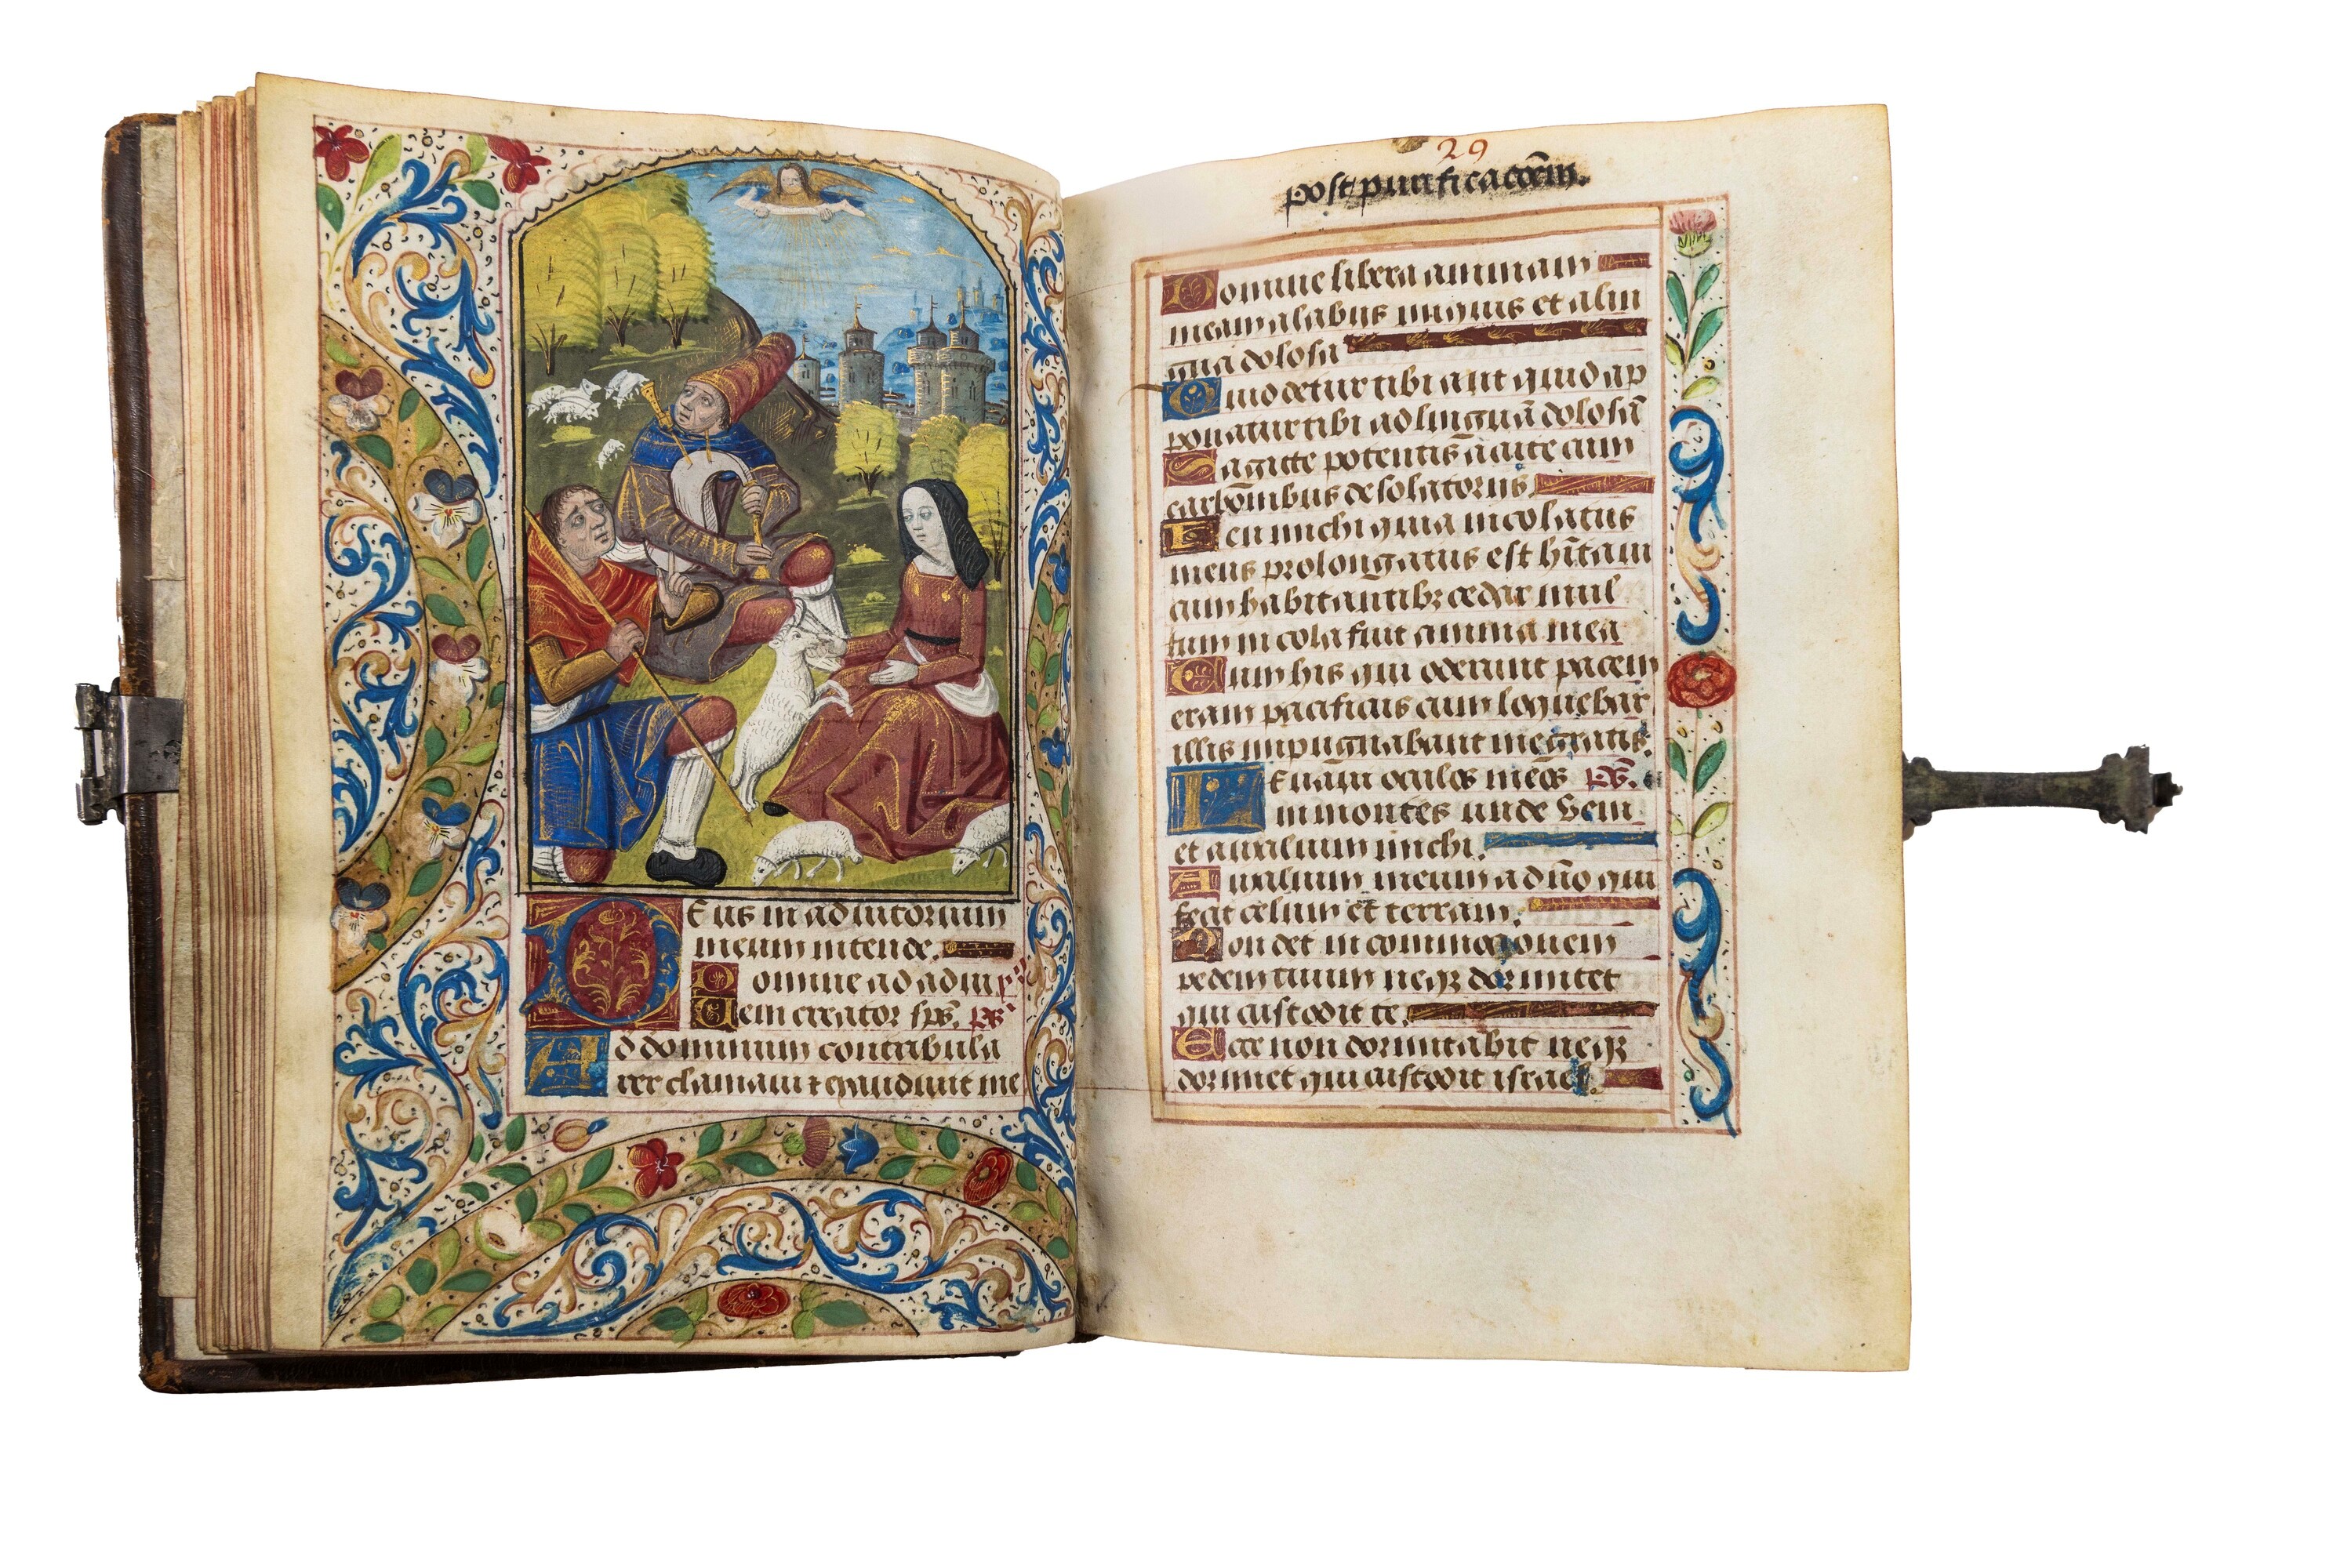 Deus in adiutorium
meum intende.
Domine ad adiu
Veni creator sp̄s. p̄s
Ad dominum cum tribula
rer clamaui ⁊ exaudiuit me
29
post purificac̄oēm.
Domine libera animam
meam a labiis iniquis et a lin
gua dolosa
Quid detur tibi aut quid ap
ponatur tibi ad linguā dolosā
Sagitte potentis acute cum
carbonibus desolatoriis
Heu michi quia incolatus
meus prolongatus est hītaui
cum habitantibꝫ cedar mul
tum incola fuit anima mea
Cum his qui oderunt pacem
eram pacificus cum loquebar
illis impugnabant me gratis.
Leuaui oculos meos p̄s.
in montes unde veni
et auxilium michi.
Auxilium meum a dn̄o qui
fecit celum et terram.
Non det in commocionem
pedem tuum neqꝫ dormitet
qui custodit te.
Ecce non dormitabit neqꝫ
dormiet qui custodit israel.